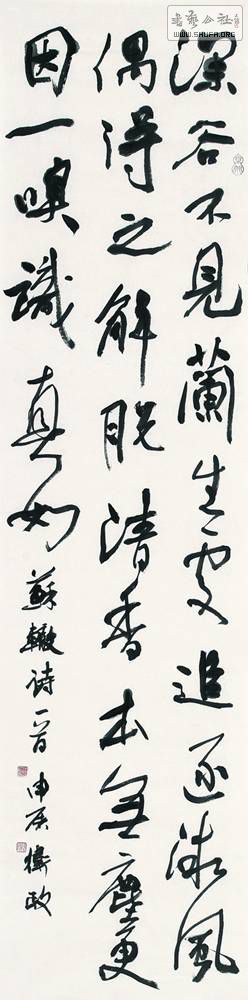 书艺公社
WWW.SHUFA.ORG
深谷不見蘭生處追逐微風
偶得之解脱清香本無塵更
因一嗅識真如
蘇轍诗一首